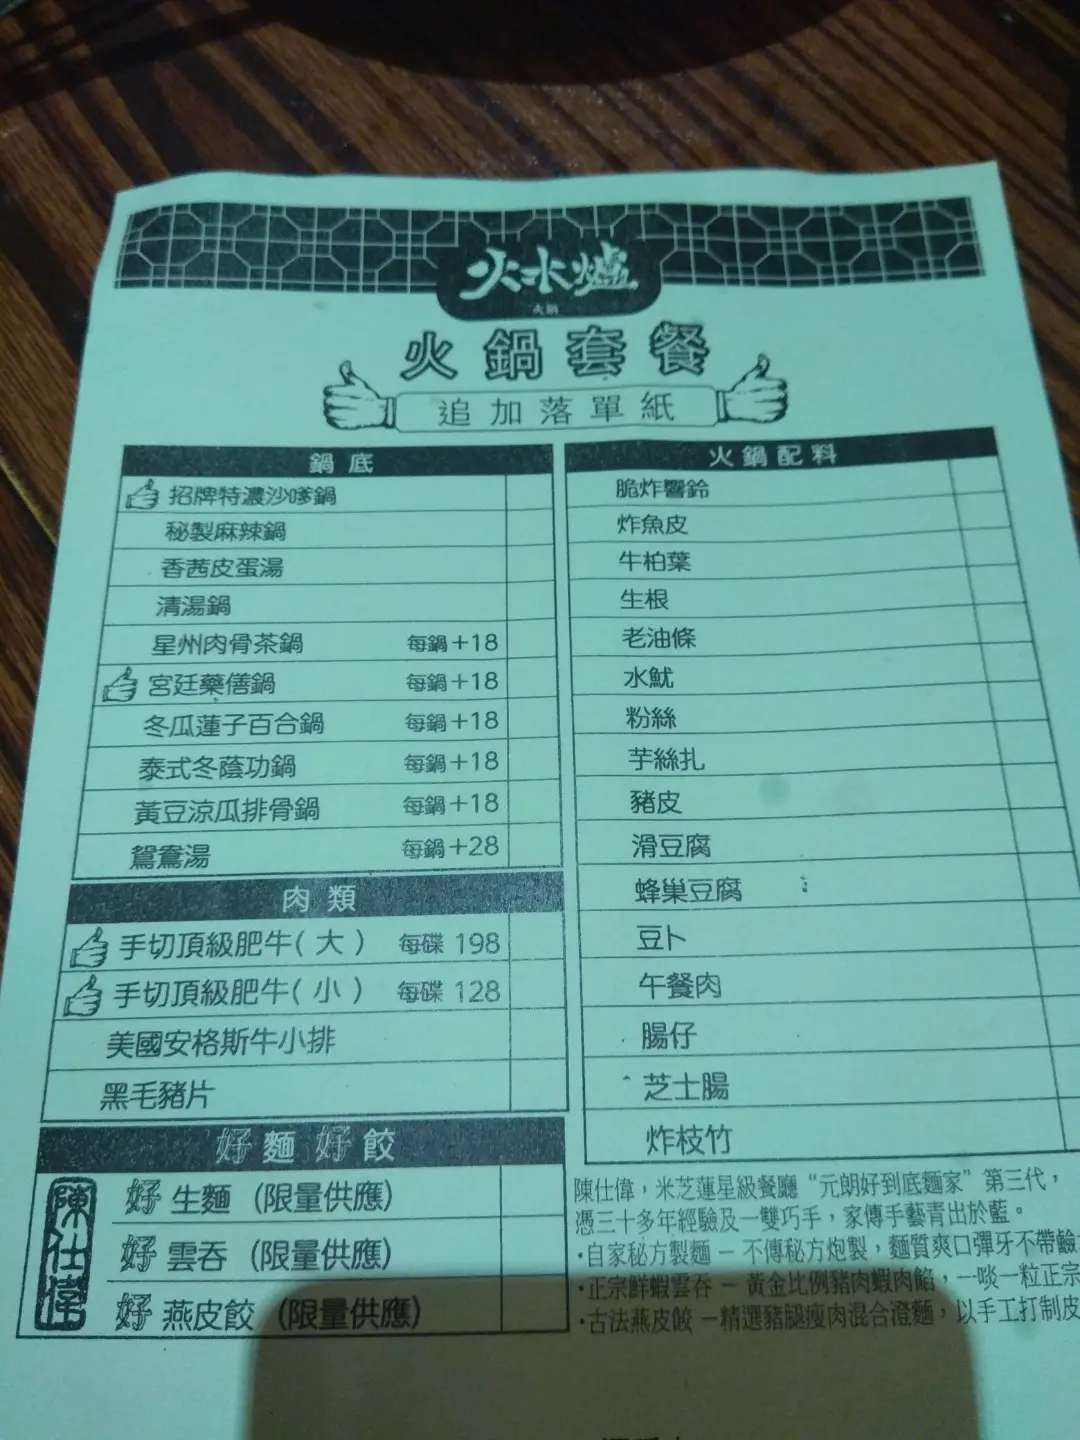 火水爐
火鍋
火鍋套餐
追加落單紙
鍋底
招牌特濃沙嗲鍋
秘製麻辣鍋
香茜皮蛋湯
清湯鍋
星州肉骨茶鍋 每鍋+18
宮廷藥僐鍋 每鍋+18
冬瓜蓮子百合鍋 每鍋+18
泰式冬蔭功鍋 每鍋+18
黃豆涼瓜排骨鍋 每鍋+18
鴛鴦湯 每鍋+28
肉類
手切頂級肥牛(大) 每碟 198
手切頂級肥牛(小) 每碟 128
美國安格斯牛小排
黑毛豬片
好麵好餃
陳仕偉
好 生麵 (限量供應)
好 雲吞 (限量供應)
好 燕皮餃 (限量供應)
火鍋配料
脆炸響鈴
炸魚皮
牛柏葉
生根
老油條
水魷
粉絲
芋絲扎
豬皮
滑豆腐
蜂巢豆腐
豆卜
午餐肉
腸仔
芝士腸
炸枝竹
陳仕偉，米芝蓮星級餐廳“元朗好到底麵家”第三代，
憑三十多年經驗及一雙巧手，家傳手藝青出於藍。
·自家秘方製麵 — 不傳秘方炮製，麵質爽口彈牙不帶鹼
·正宗鮮蝦雲吞 — 黃金比例豬肉蝦肉餡，一啖一粒正宗
·古法燕皮餃 —精選豬腿瘦肉混合澄麵，以手工打制皮